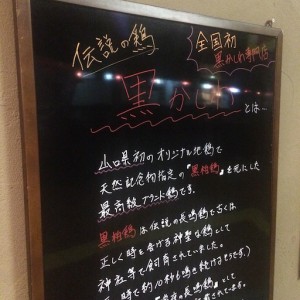 伝説の鶏
全国初
黒かしわ専門店
黒かしわ
とは…
山口県初のオリジナル地鶏で
天然記念物指定の『黒柏鶏』を元にした
最高級ブランド鶏です。
黒柏鶏は伝説の長鳴鶏で古くは
正しく時を告げる神聖な鶏として
神社等で飼育されていました。
時で約10秒も鳴き続けるそうです。)
長鳴鶏』として
されています。